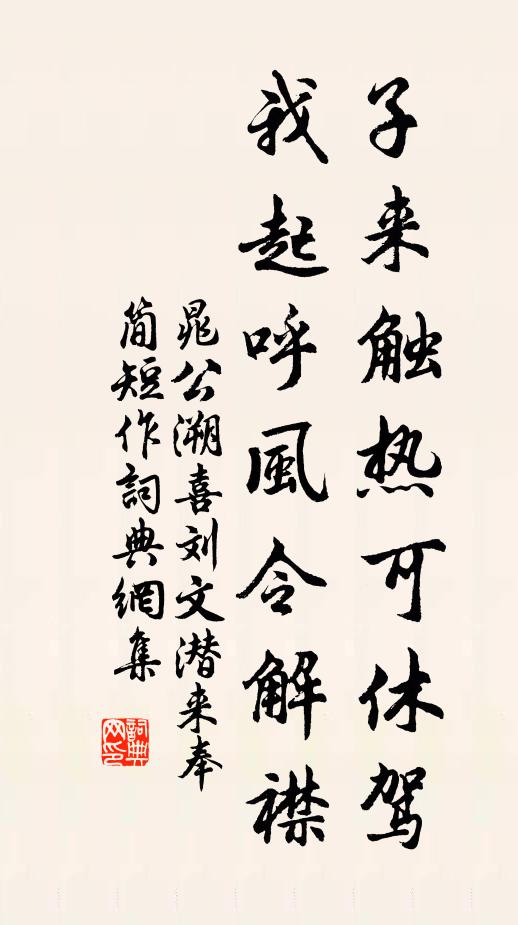 子来触热可休驾
我起呼風令解襟
晁公溯喜刘文潜来奉
简短作詞典網集
詞典網印